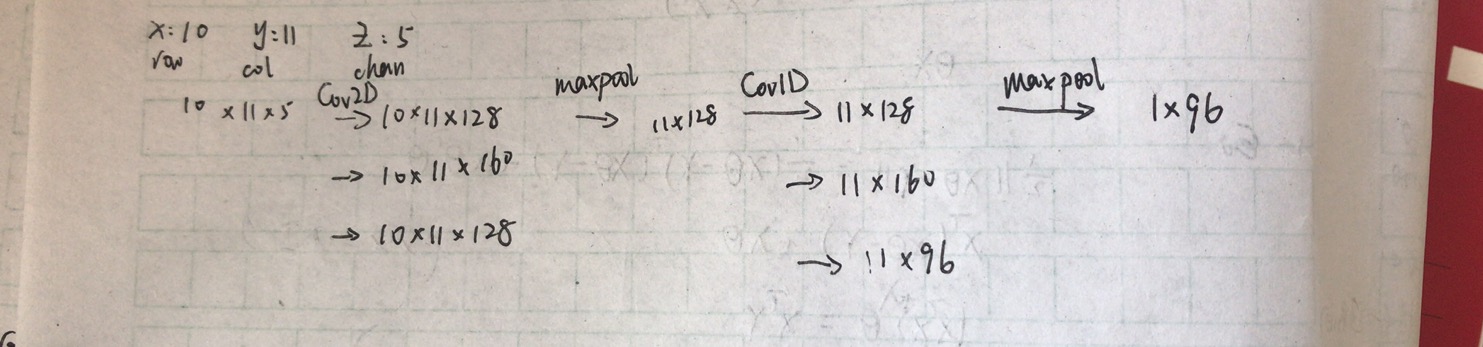 x:10 y:11 z:5
row col chan
10 x 11 x 5 Cov2D → 10 x 11 x 128 maxpool → 11 x 128 Cov1D → 11 x 128 maxpool → 1 x 96
→ 10 x 11 x 160 → 11 x 160
→ 10 x 11 x 128
→ 11 x 96